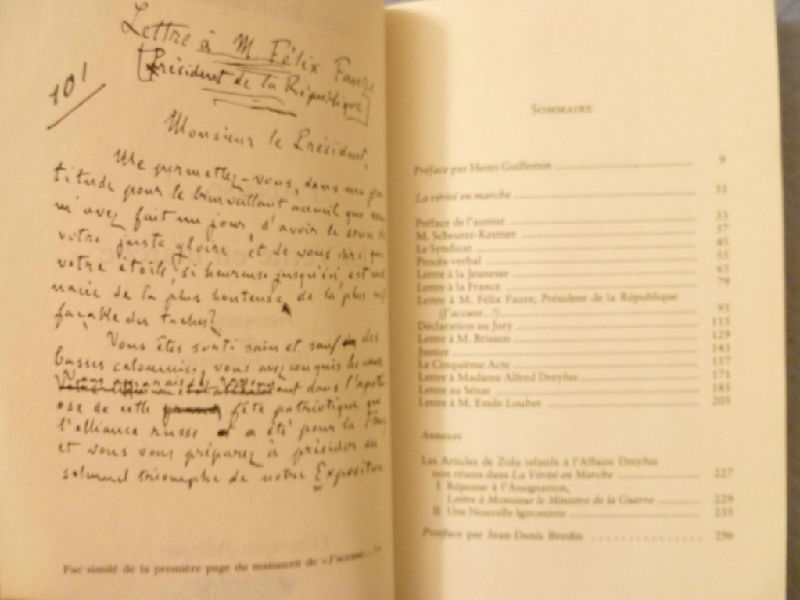 Lettre à M. Félix Faure
Président de la République
101
Monsieur le Président,
Me permettez-vous, dans ma gra-
titude pour le bienveillant accueil que vous
m'avez fait un jour, d'avoir le souci de
votre juste gloire et de vous dire que
votre étoile, si heureuse jusqu'ici, est me-
nacée de la plus honteuse, de la plus inef-
façable des taches?
Vous êtes sorti sain et sauf des
basses calomnies, vous avez conquis les cœurs.
dans l'apothé-
ose de cette fête patriotique que
l'alliance russe a été pour la
et vous vous préparez à présider au
solennel triomphe de notre Exposition
Fac similé de la première page du manuscrit de «J'accuse...!»
SOMMAIRE
Préface par Henri Guillemin 9
La vérité en marche 31
Préface de l'auteur 33
M. Scheurer-Kestner 37
Le Syndicat 45
Procès-verbal 55
Lettre à la Jeunesse 65
Lettre à la France 79
Lettre à M. Félix Faure, Président de la République
(J'accuse...!) 95
Déclaration au Jury 113
Lettre à M. Brisson 129
Justice 143
Le Cinquième Acte 157
Lettre à Madame Alfred Dreyfus 171
Lettre au Sénat 185
Lettre à M. Emile Loubet 205
ANNEXES
Les Articles de Zola relatifs à l'Affaire Dreyfus
non réunis dans La Vérité en Marche 227
I Réponse à l'Assignation,
Lettre à Monsieur le Ministre de la Guerre 229
II Une Nouvelle Ignominie 235
Postface par Jean-Denis Bredin 239